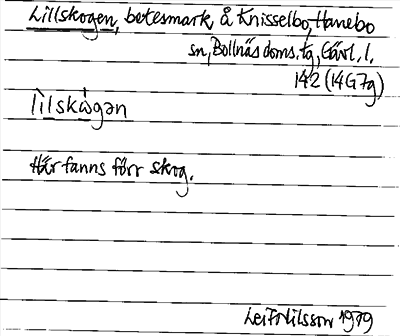 Lillskogen, betesmark, å Knisselbo, Hanebo
sn, Bollnäs doms. tg, Gävl. l.
142 (14G7g)
lìlskɷ̀gən
Här fanns förr skog.
Leif Nilsson 1979